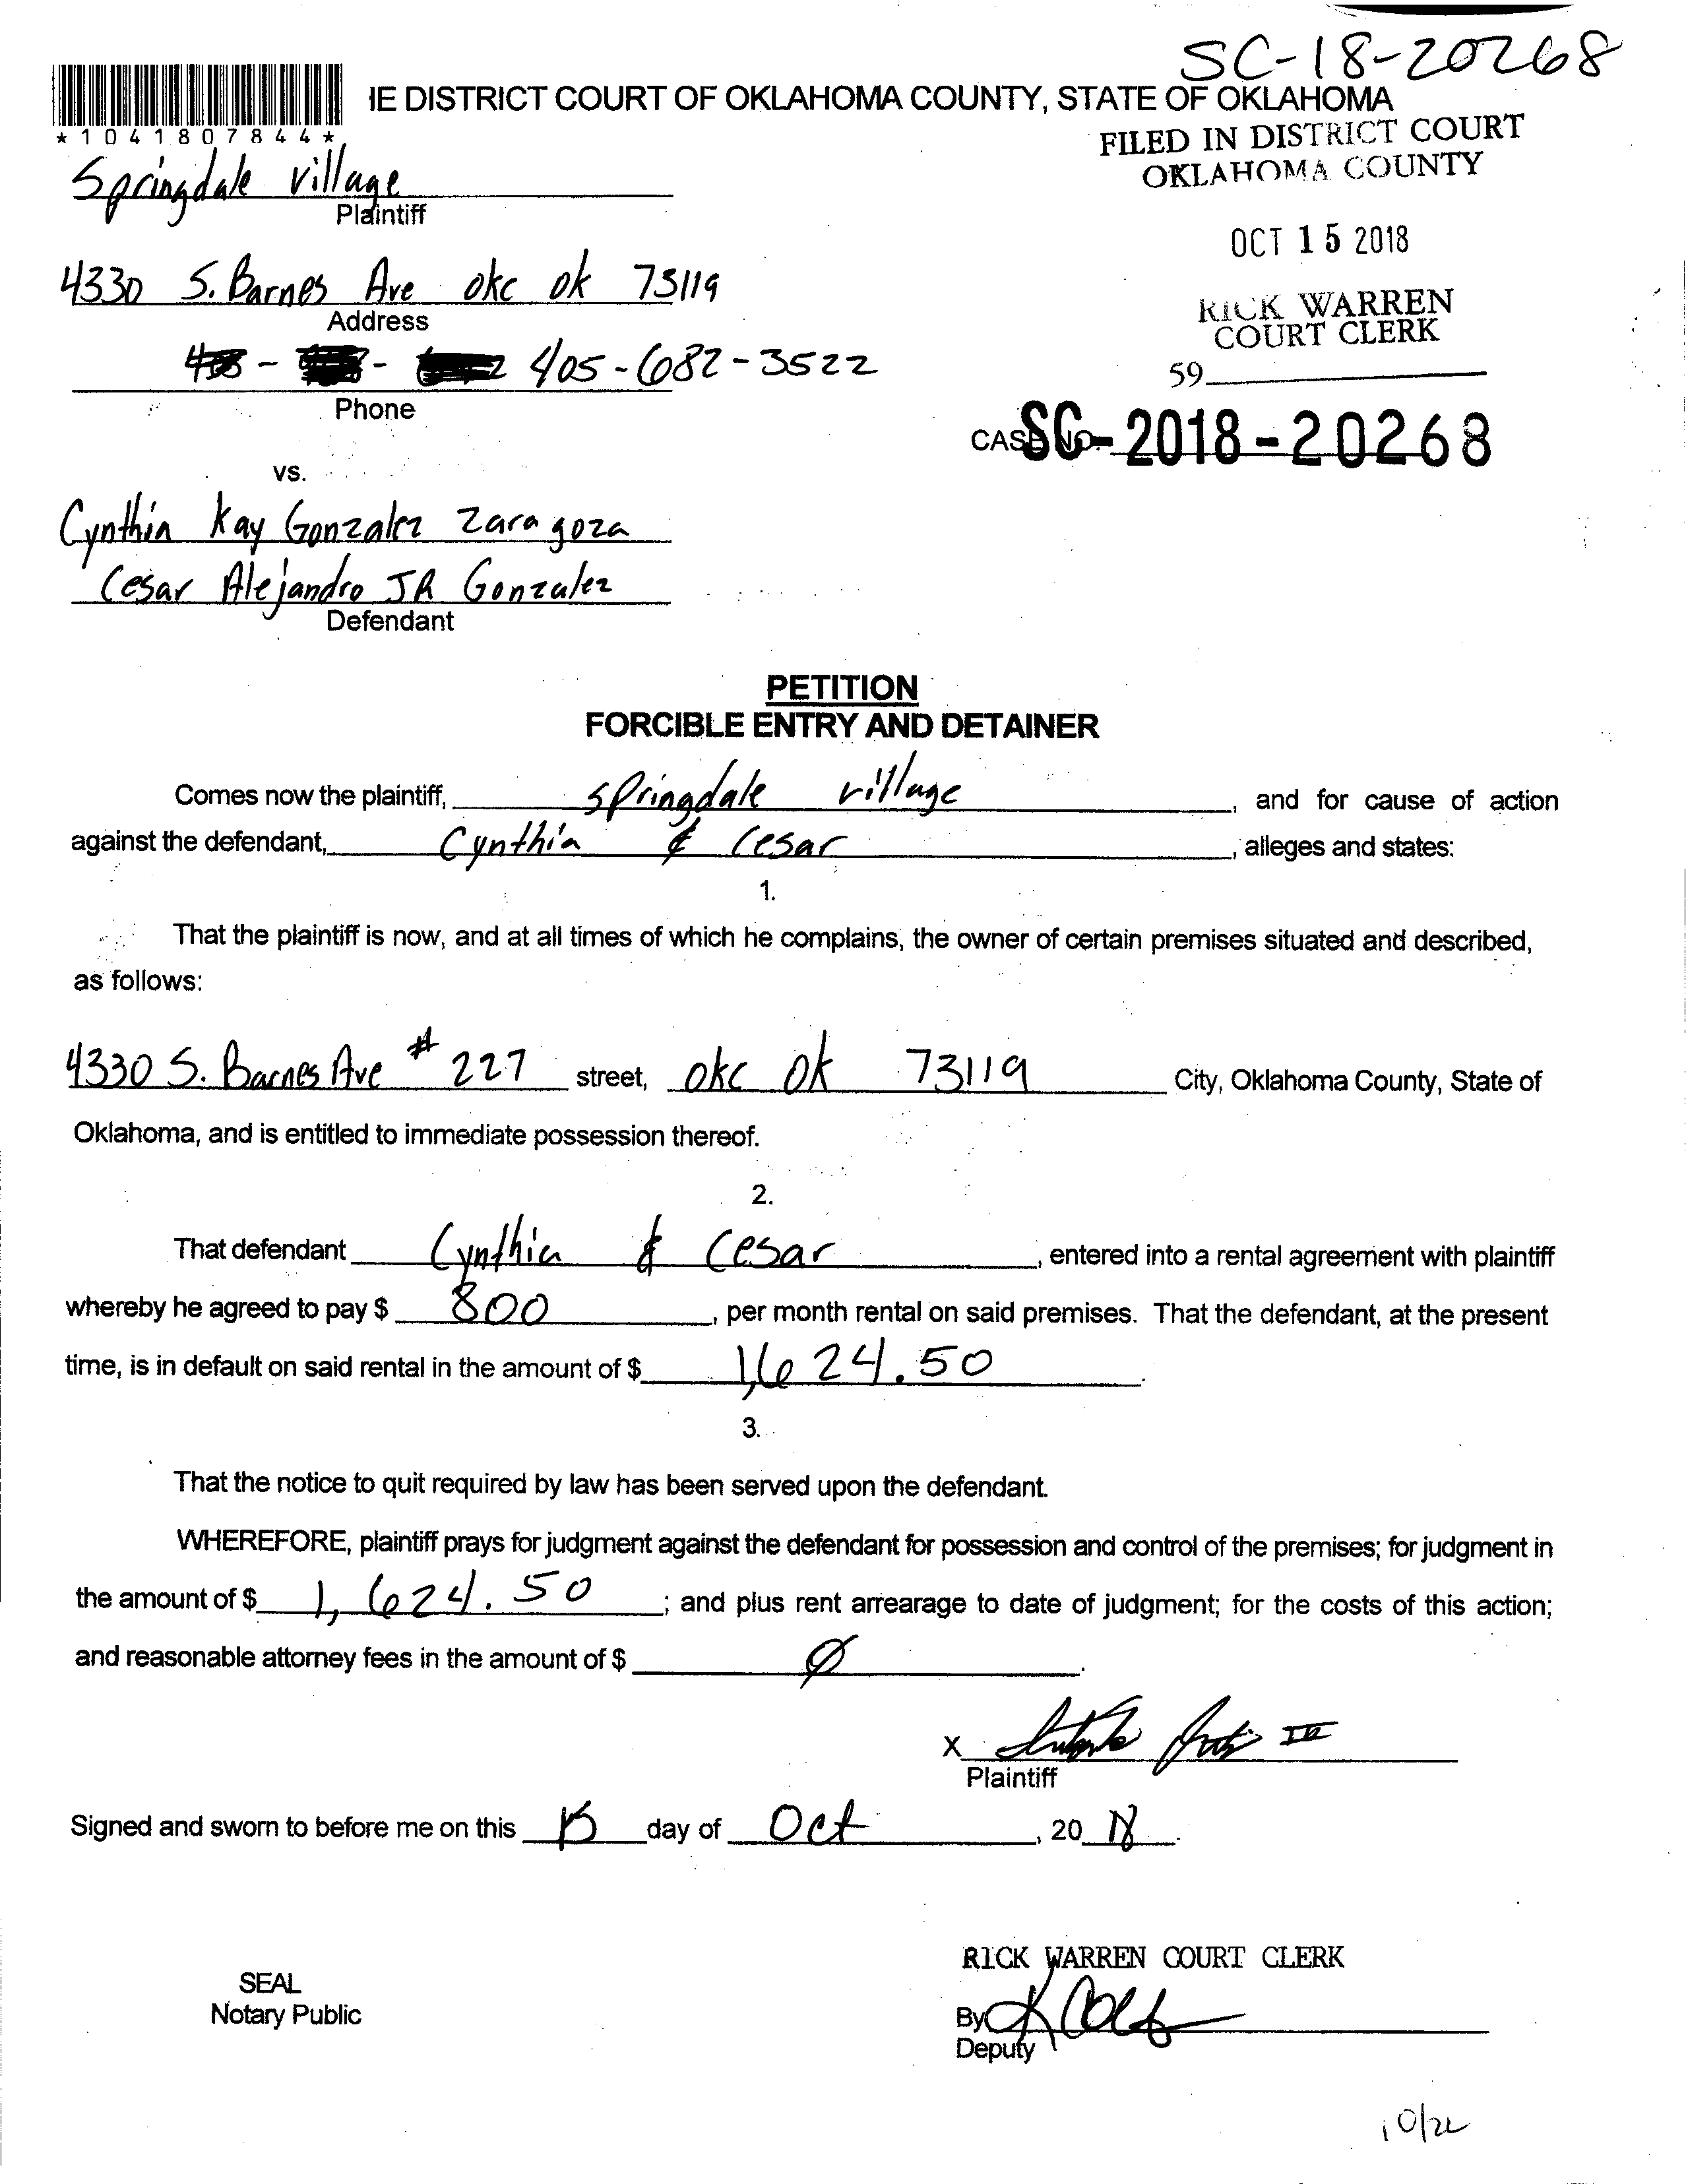 SC-18-20268
IE DISTRICT COURT OF OKLAHOMA COUNTY, STATE OF OKLAHOMA
*1041807844*
FILED IN DISTRICT COURT
OKLAHOMA COUNTY
Springdale Village
Plaintiff
OCT 15 2018
4330 S. Barnes Ave okc ok 73119
Address
RICK WARREN
COURT CLERK
405-682-3522
59
Phone
CASE NO. SC-2018-20268
vs.
Cynthia Kay Gonzalez Zaragoza
Cesar Alejandro JR Gonzalez
Defendant
PETITION
FORCIBLE ENTRY AND DETAINER
Comes now the plaintiff, springdale village, and for cause of action
against the defendant, Cynthia & Cesar, alleges and states:
1.
That the plaintiff is now, and at all times of which he complains, the owner of certain premises situated and described,
as follows:
4330 S. Barnes Ave # 227 street, okc ok 73119 City, Oklahoma County, State of
Oklahoma, and is entitled to immediate possession thereof.
2.
That defendant Cynthia & Cesar, entered into a rental agreement with plaintiff
whereby he agreed to pay $ 800, per month rental on said premises. That the defendant, at the present
time, is in default on said rental in the amount of $ 1,624.50.
3.
That the notice to quit required by law has been served upon the defendant.
WHEREFORE, plaintiff prays for judgment against the defendant for possession and control of the premises; for judgment in
the amount of $ 1,624.50; and plus rent arrearage to date of judgment; for the costs of this action;
and reasonable attorney fees in the amount of $ Ø.
X III
Plaintiff
Signed and sworn to before me on this 15 day of Oct, 20 18.
RICK WARREN COURT CLERK
SEAL
Notary Public
By
Deputy
10/22